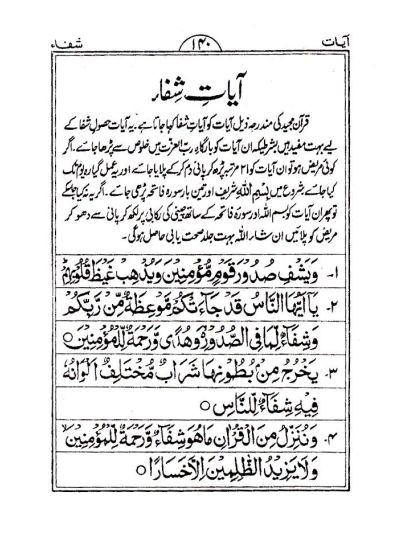 آیات ۱۴۰ شفاء
آیاتِ شِفاء
قرآن مجید کی مندرجہ ذیل آیات کو آیاتِ شفا کہا جاتا ہے۔ یہ آیات حصولِ شفا کے
لیے بہت مفید ہیں بشرطیکہ ان آیات کو بارگاہِ ربّ العزت میں خلوص سے پڑھا جائے۔ اگر
کوئی مریض ہو تو ان آیات کو ۲۱ مرتبہ پڑھ کر پانی دم کر کے پلایا جائے اور یہ عمل گیارہ یوم تک
کیا جائے شروع میں بِسْمِ اللہ شریف اور تین بار سورہ فاتحہ پڑھی جائے۔ اگر یہ نہ کیا جا سکے
تو پھر ان آیات کو بسم اللہ اور سورہ فاتحہ کے ساتھ چینی کی رکابی پر لکھ کر پانی سے دھو کر
مریض کو پلائیں ان شاء اللہ بہت جلد صحت یابی حاصل ہوگی۔
۱۔ وَيَشْفِ صُدُوْرَ قَوْمٍ مُّؤْمِنِيْنَ وَيُذْهِبْ غَيْظَ قُلُوْبِهِمْ
۲۔ يَا اَيُّهَا النَّاسُ قَدْ جَآءَتْكُمْ مَّوْعِظَةٌ مِّنْ رَّبِّكُمْ
وَشِفَآءٌ لِّمَا فِى الصُّدُوْرِ وَهُدًى وَّرَحْمَةٌ لِّلْمُؤْمِنِيْنَ ○
۳۔ يَخْرُجُ مِنْ بُطُوْنِهَا شَرَابٌ مُّخْتَلِفٌ اَلْوَانُهٗ
فِيْهِ شِفَآءٌ لِّلنَّاسِ ○
۴۔ وَنُنَزِّلُ مِنَ الْقُرْاٰنِ مَا هُوَ شِفَآءٌ وَّرَحْمَةٌ لِّلْمُؤْمِنِيْنَ لا
وَلَا يَزِيْدُ الظّٰلِمِيْنَ اِلَّا خَسَارًا ○